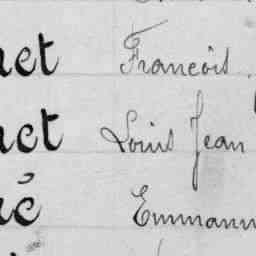 uet François
uet Louis Jean
ué Emmanu